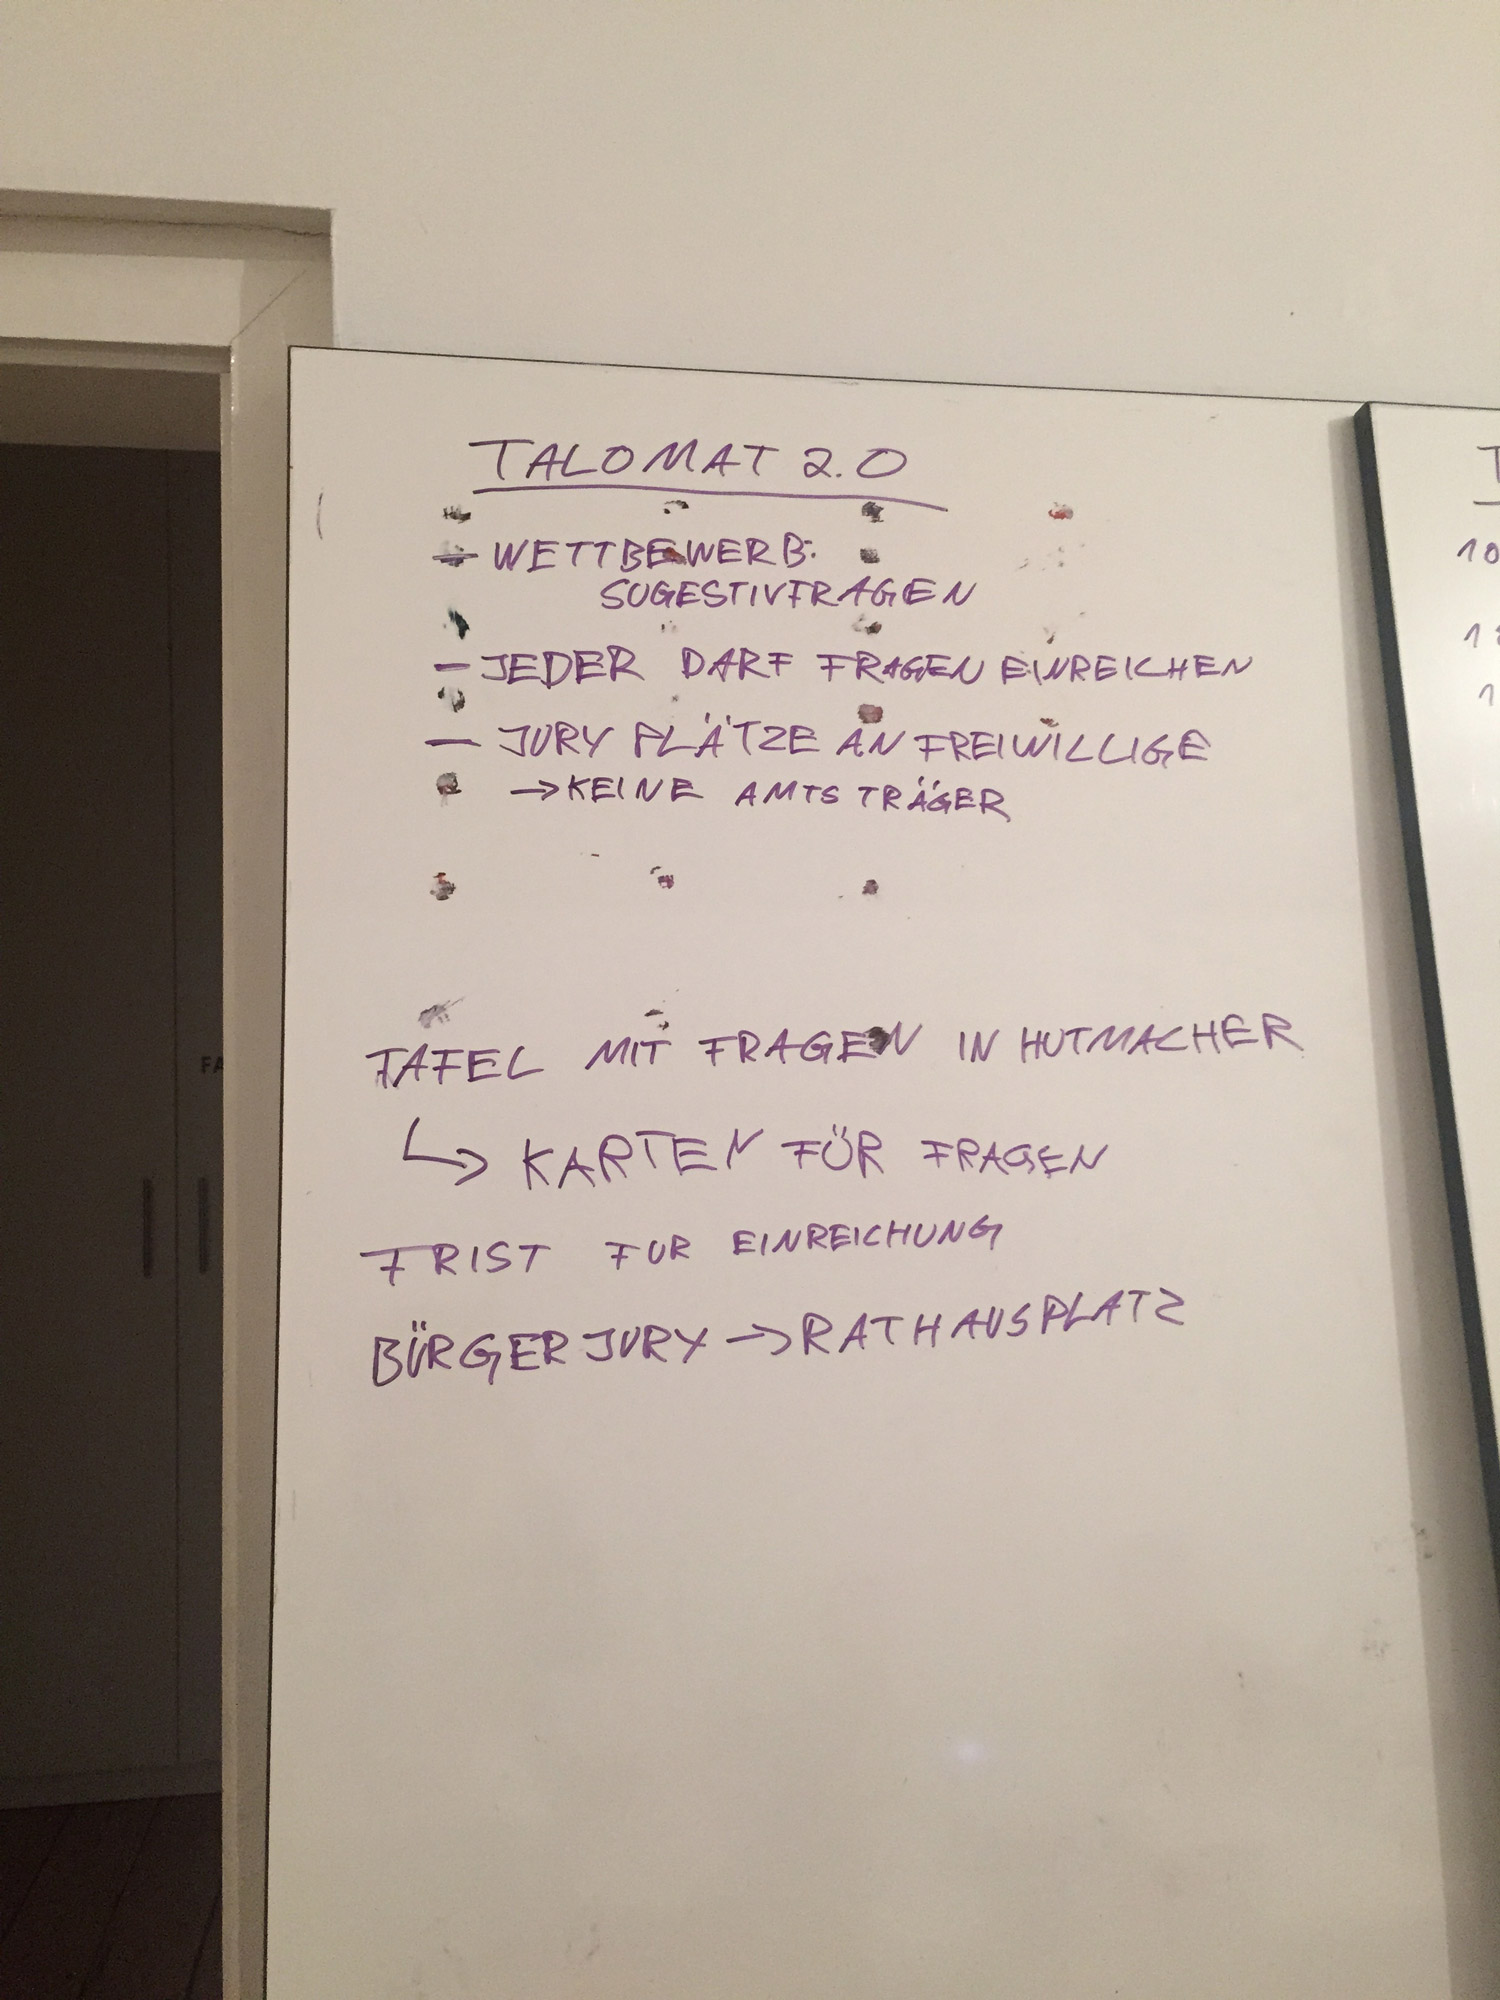 TALOMAT 2.0
— WETTBEWERB:
SUGESTIVFRAGEN
— JEDER DARF FRAGEN EINREICHEN
— JURY PLÄTZE AN FREIWILLIGE
→ KEINE AMTSTRÄGER
TAFEL MIT FRAGEN IN HUTMACHER
↳ KARTEN FÜR FRAGEN
FRIST FUR EINREICHUNG
BÜRGERJURY → RATHAUSPLATZ
FA
10